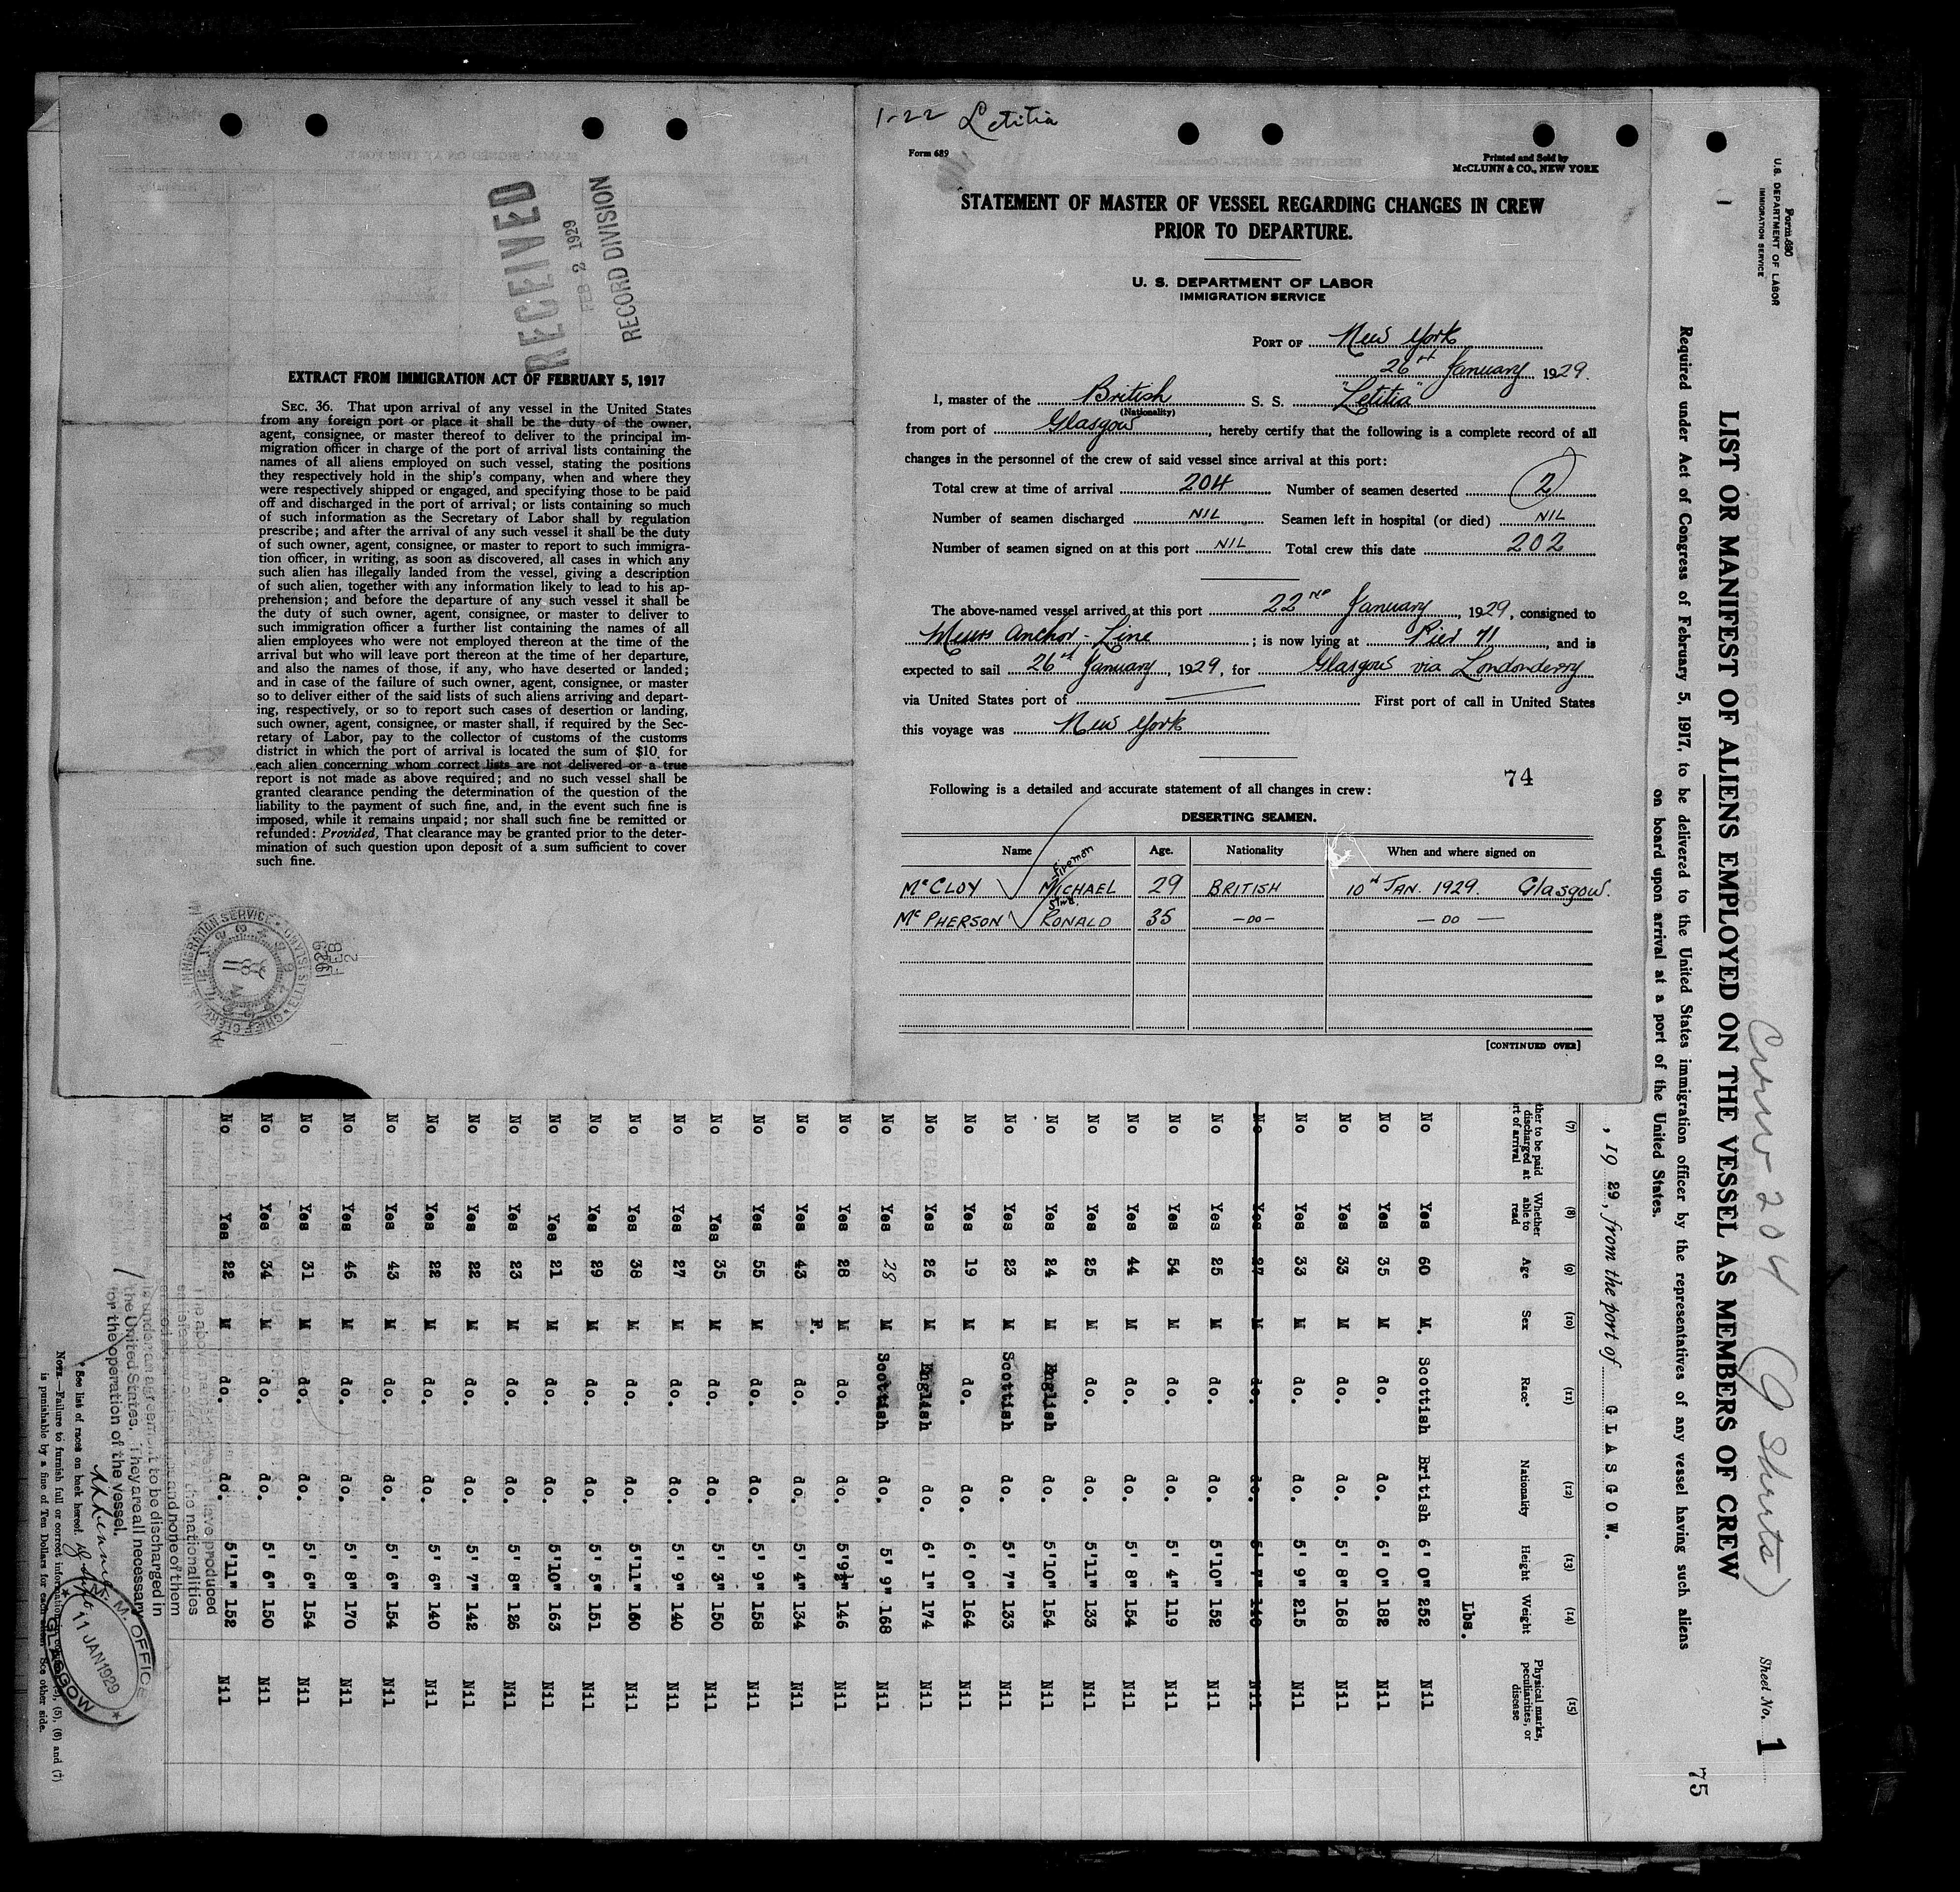 1-22 Letitia
Form 689
Printed and Sold by
McCLUNN & CO., NEW YORK
STATEMENT OF MASTER OF VESSEL REGARDING CHANGES IN CREW
PRIOR TO DEPARTURE.
U. S. DEPARTMENT OF LABOR
IMMIGRATION SERVICE
PORT OF New York
26th January 1929.
I, master of the British S. S. "Letitia"
(Nationality)
from port of Glasgow, hereby certify that the following is a complete record of all
changes in the personnel of the crew of said vessel since arrival at this port:
Total crew at time of arrival 204 Number of seamen deserted 2
Number of seamen discharged NIL Seamen left in hospital (or died) NIL
Number of seamen signed on at this port NIL Total crew this date 202
The above-named vessel arrived at this port 22nd January, 1929, consigned to
Messrs Anchor-Line; is now lying at Pier 71, and is
expected to sail 26th January, 1929, for Glasgow via Londonderry
via United States port of First port of call in United States
this voyage was New York
74
Following is a detailed and accurate statement of all changes in crew:
DESERTING SEAMEN.
Name Age. Nationality When and where signed on
Fireman
McCLOY MICHAEL 29 BRITISH 10th JAN. 1929. Glasgow.
Stwd.
McPHERSON RONALD 35 -DO- -DO-
[CONTINUED OVER]
RECEIVED
FEB 2 1929
RECORD DIVISION
EXTRACT FROM IMMIGRATION ACT OF FEBRUARY 5, 1917
SEC. 36. That upon arrival of any vessel in the United States
from any foreign port or place it shall be the duty of the owner,
agent, consignee, or master thereof to deliver to the principal im-
migration officer in charge of the port of arrival lists containing the
names of all aliens employed on such vessel, stating the positions
they respectively hold in the ship's company, when and where they
were respectively shipped or engaged, and specifying those to be paid
off and discharged in the port of arrival; or lists containing so much
of such information as the Secretary of Labor shall by regulation
prescribe; and after the arrival of any such vessel it shall be the duty
of such owner, agent, consignee, or master to report to such immigra-
tion officer, in writing, as soon as discovered, all cases in which any
such alien has illegally landed from the vessel, giving a description
of such alien, together with any information likely to lead to his ap-
prehension; and before the departure of any such vessel it shall be
the duty of such owner, agent, consignee, or master to deliver to
such immigration officer a further list containing the names of all
alien employees who were not employed thereon at the time of the
arrival but who will leave port thereon at the time of her departure,
and also the names of those, if any, who have deserted or landed;
and in case of the failure of such owner, agent, consignee, or master
so to deliver either of the said lists of such aliens arriving and depart-
ing, respectively, or so to report such cases of desertion or landing,
such owner, agent, consignee, or master shall, if required by the Sec-
retary of Labor, pay to the collector of customs of the customs
district in which the port of arrival is located the sum of $10 for
each alien concerning whom correct lists are not delivered or a true
report is not made as above required; and no such vessel shall be
granted clearance pending the determination of the question of the
liability to the payment of such fine, and, in the event such fine is
imposed, while it remains unpaid; nor shall such fine be remitted or
refunded: Provided, That clearance may be granted prior to the deter-
mination of such question upon deposit of a sum sufficient to cover
such fine.
1929
FEB
2
Form 680
U.S. DEPARTMENT OF LABOR
IMMIGRATION SERVICE
Crew 204 (9 Sheets)
Sheet No. 1
75
LIST OR MANIFEST OF ALIENS EMPLOYED ON THE VESSEL AS MEMBERS OF CREW
Required under Act of Congress of February 5, 1917, to be delivered to the United States immigration officer by the representatives of any vessel having such aliens
on board upon arrival at a port of the United States.
, 19 29, from the port of GLASGOW.
(7) (8) (9) (10) (11) (12) (13) (14) (15)
ther to be paid discharged at rt of arrival Whether able to read Age Sex Race* Nationality Height Weight Physical marks, peculiarities, or disease
Lbs.
No Yes 60 M. Scottish British 6' 0" 252 Nil
No Yes 35 M do. do. 6' 0" 182 Nil
No Yes 33 M do. do. 5' 8" 168 Nil
No Yes 33 M do. do. 5' 9" 215 Nil
No Yes 27 M do. do. 5' 7" 140 Nil
No Yes 25 M do. do. 5'10" 152 Nil
No Yes 54 M do. do. 5' 4" 119 Nil
No Yes 44 M do. do. 5' 8" 154 Nil
No Yes 25 M do. do. 5'11" 133 Nil
No Yes 24 M English do. 5'10" 154 Nil
No Yes 23 M Scottish do. 5' 7" 133 Nil
No Yes 19 M do. do. 6' 0" 164 Nil
No Yes 26 M English do. 6' 1" 174 Nil
No Yes 28 M Scottish do. 5' 9" 168 Nil
No Yes 28 M do. do. 5'9½" 146 Nil
No Yes 43 F. do. do. 5' 4" 134 Nil
No Yes 55 M do. do. 5' 9" 158 Nil
No Yes 35 M do. do. 5' 3" 150 Nil
No Yes 27 M do. do. 5' 9" 140 Nil
No Yes 38 M do. do. 5'11" 160 Nil
No Yes 29 M do. do. 5' 5" 151 Nil
No Yes 21 M do. do. 5'10" 163 Nil
No Yes 23 M do. do. 5' 8" 126 Nil
No Yes 22 M do. do. 5' 7" 142 Nil
No Yes 22 M do. do. 5' 6" 140 Nil
No Yes 43 M do. do. 5' 6" 154 Nil
No Yes 46 M do. do. 5' 8" 170 Nil
No Yes 31 M do. do. 5' 6" 154 Nil
No Yes 34 M do. do. 5' 6" 150 Nil
No Yes 22 M do. do. 5'11" 152 Nil
have produced
the nationalities
and none of them
is under an agreement to be discharged in
the United States. They are all necessary
for the operation of the vessel.
* See list of races on back hereof.
NOTE.—Failure to furnish full or correct information (5), (6) and (7)
is punishable by a fine of Ten Dollars for each alien. See other side.
M. M. OFFICE
11 JAN 1929
GLASGOW